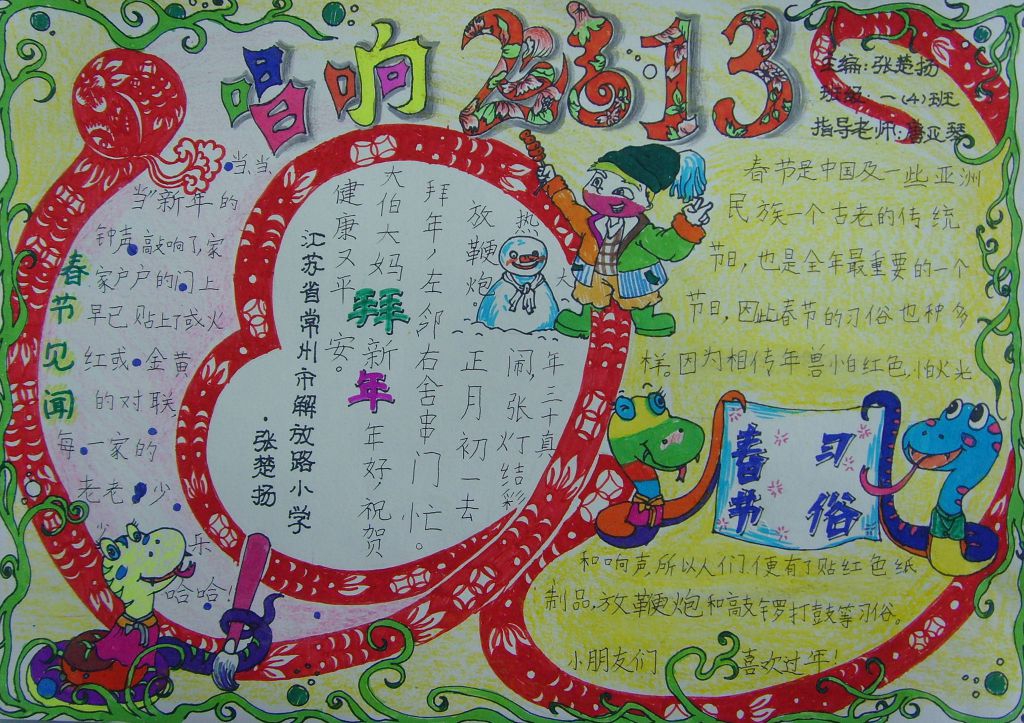 唱响2013
主编:张楚扬
班级:一(4)班
指导老师: 亚琴
春节见闻
当、当、
当"新年的
钟声敲响了,家
家户户的门上
早已贴上了或火
红或金黄
的对联,
每一家的
老老少少
乐
哈哈!
拜年
大年三十真
热闹,张灯结彩
放鞭炮。正月初一去
拜年,左邻右舍串门忙。
大伯大妈新年好,祝贺
健康又平安。
江苏省常州市解放路小学
·张楚扬
春节习俗
春节是中国及一些亚洲
民族一个古老的传统
节日,也是全年最重要的一个
节日,因此春节的习俗也种多
样。因为相传年兽怕红色,怕火光
和响声,所以人们便有了贴红色纸
制品,放鞭炮和敲锣打鼓等习俗。
小朋友们 喜欢过年!